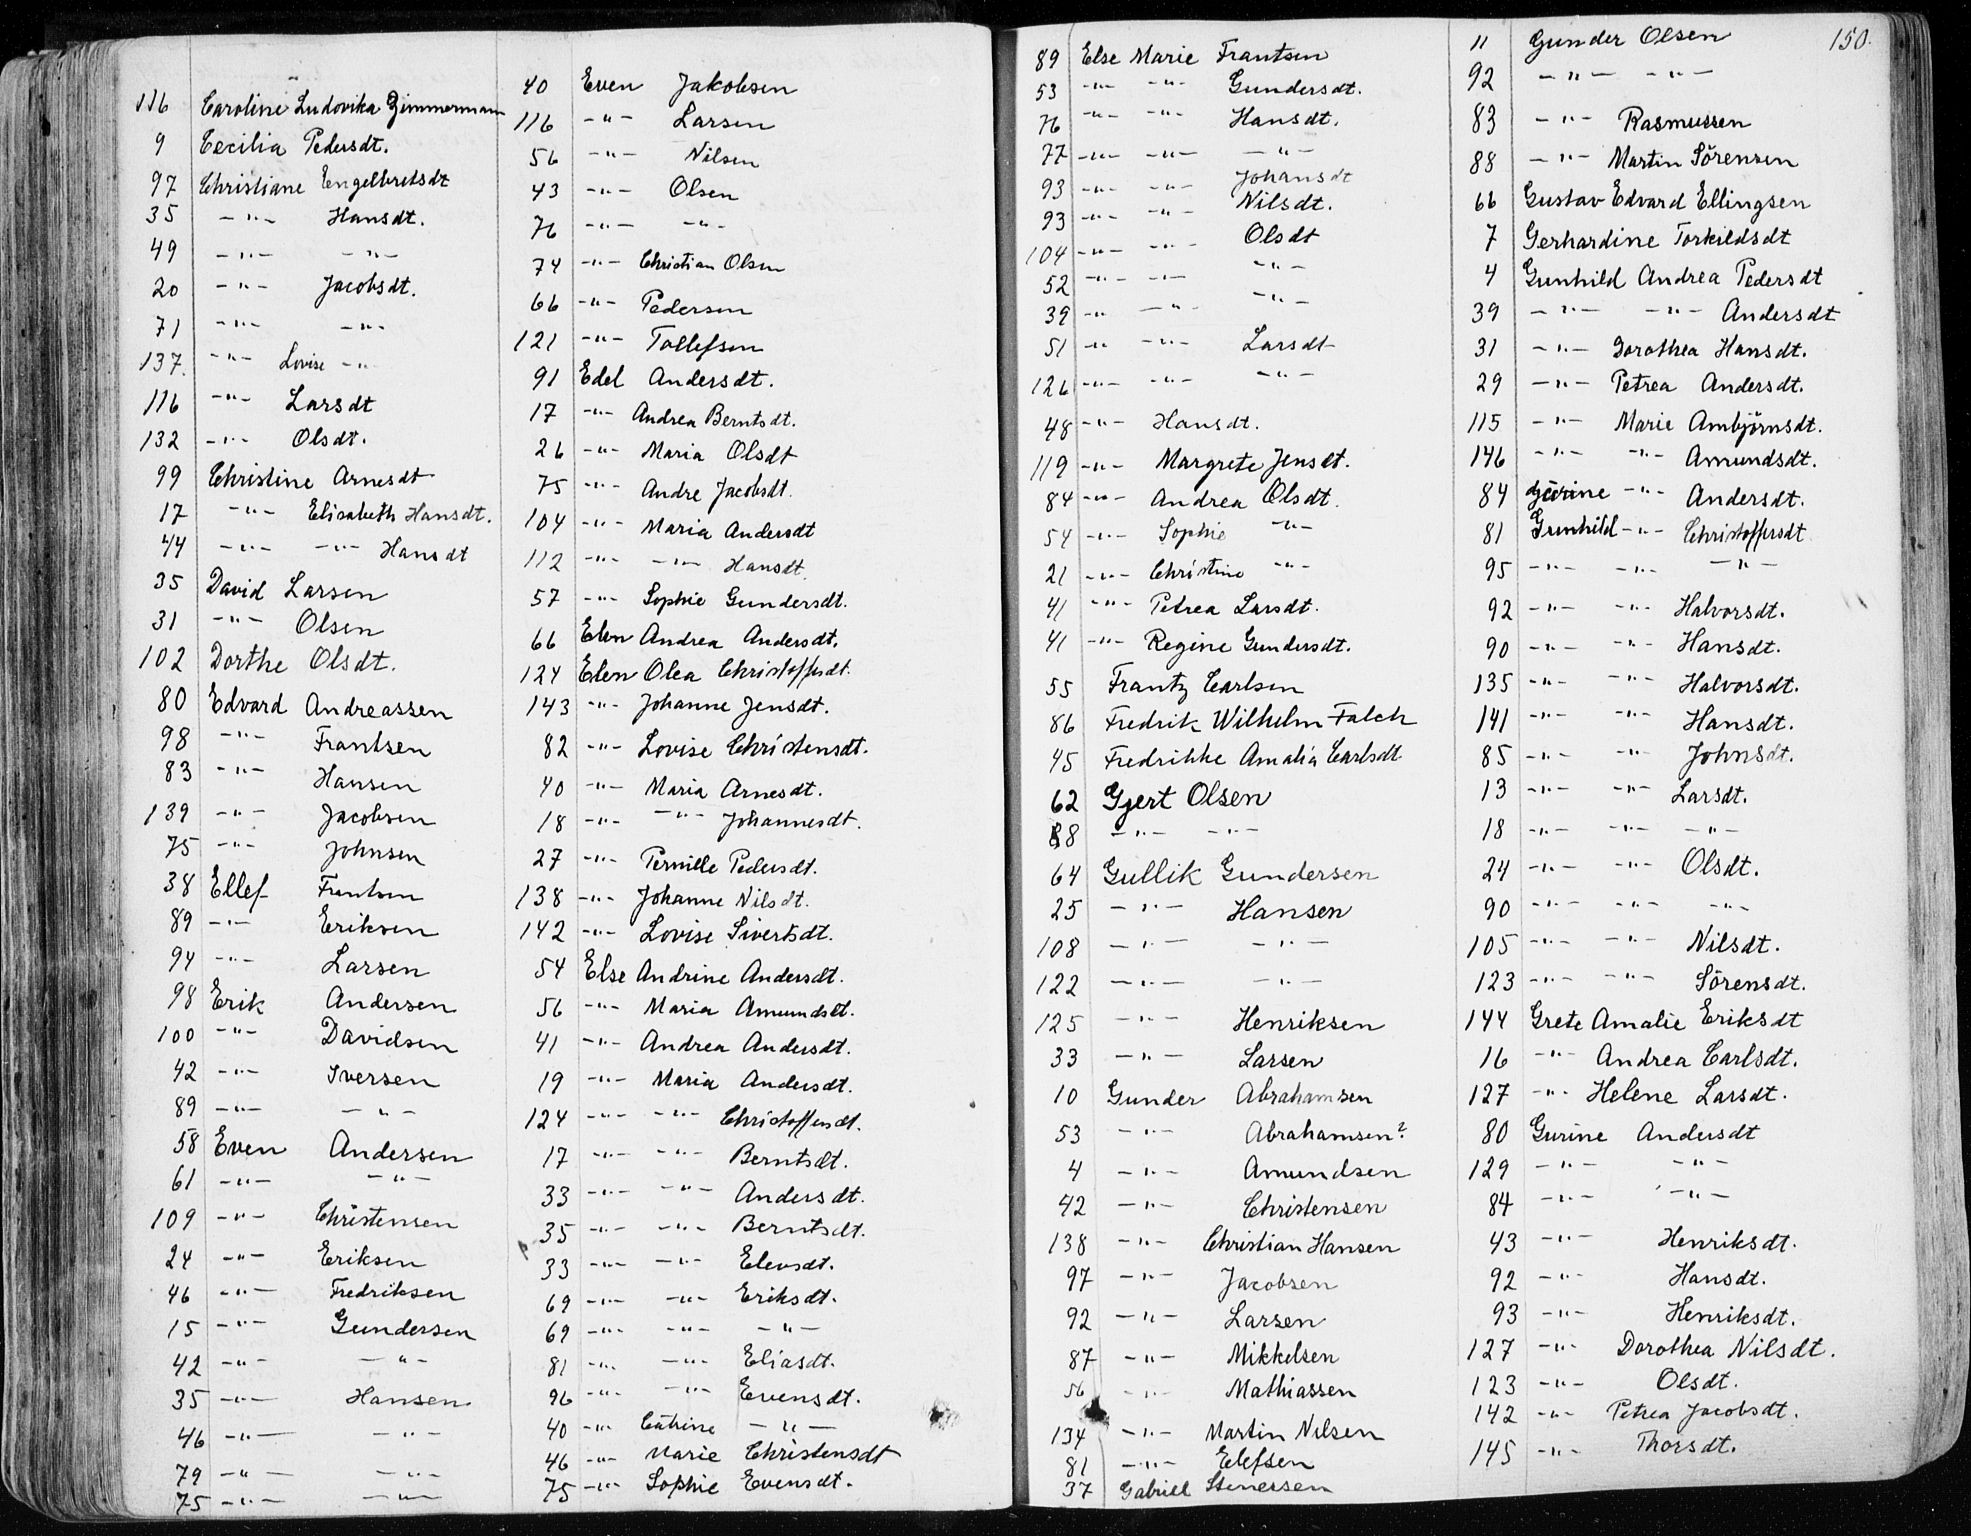 116 Caroline Ludovika Zimmermann
9 Cecilia Pedersdt.
97 Christiane Engelbretsdt
35 -"- Hansdt.
49 -"- -"-
20 -"- Jacobsdt.
71 -"- -"-
137. -"- Lovise -"-
116 -"- Larsdt
132 -"- Olsdt.
99 Christine Arnesdt
17 -"- Elisabeth Hansdt.
44 -"- -"- Hansdt
35 David Larsen
31 -"- Olsen
102 Dorthe Olsdt.
80 Edvard Andreassen
98 -"- Frantsen
83 -"- Hansen
139 -"- Jacobsen
75 -"- Johnsen
38 Ellef Frantsen
89 -"- Eriksen
94 -"- Larsen
98 Erik Andersen
100 -"- Davidsen
42 -"- Iversen
89 -"- -"-
58 Even Andersen
61 -"- -"-
109 -"- Christensen
24 -"- Eriksen
46 -"- Fredriksen
15 -"- Gundersen
42 -"- -"-
35 -"- Hansen
46 -"- -"-
79 -"- -"-
75 -"- -"-
40 Even Jakobsen
116 -"- Larsen
56 -"- Nilsen
43 -"- Olsen
76 -"- -"-
74 -"- Christian Olsen
66 -"- Pedersen
121 -"- Tollefsen
91 Edel Andersdt.
17 -"- Andrea Berntsdt.
26 -"- Maria Olsdt
75 -"- Andre Jacobsdt.
104 -"- Maria Andersdt
112 -"- -"- Hansdt.
57 -"- Sophie Gundersdt.
66 Elen Andrea Andersdt.
124 Elen Olea Christoffersdt.
143 -"- Johanne Jensdt.
82 -"- Lovise Christensdt.
40 -"- Maria Arnesdt.
18 -"- -"- Johannesdt.
27 -"- Pernille Pedersdt.
138 -"- Johanne Nilsdt.
142 -"- Lovise Sivertsdt.
54 Else Andrine Andersdt.
56 -"- Maria Amundsdt.
41 -"- Andrea Andersdt.
19 -"- Maria Andersdt.
124 -"- -"- Christoffersdt.
17 -"- -"- Berntsdt.
33 -"- -"- Andersdt.
35 -"- -"- Berntsdt.
33 -"- -"- Elensdt.
69 -"- -"- Eriksdt.
69 -"- -"- -"-
81 -"- -"- Eliasdt.
96 -"- -"- Evensdt.
40 -"- Catrine -"-
46 -"- Marie Christensdt
75 -"- Sophie Evensdt.
89 Else Marie Frantsen
53 -"- -"- Gundersdt.
76 -"- -"- Hansdt.
77 -"- -"- -"-
93 -"- -"- Johansdt
93 -"- -"- Nilsdt.
104 -"- -"- Olsdt
52 -"- -"- -"-
39 -"- -"- -"-
51 -"- -"- Larsdt
126 -"- -"- -"-
48 -"- Hansdt.
119 -"- Margrete Jensdt.
84 -"- Andrea Olsdt.
54 -"- Sophie -"-
21 -"- Christine -"-
41 -"- Petrea Larsdt.
41 -"- Regine Gundersdt.
55 Frantz Carlsen
86 Fredrik Wilhelm Falch
45 Fredrikke Amalia Carlsdt
62 Gjert Olsen
88 -"- -"-
64 Gullik Gundersen
25 -"- Hansen
108 -"- -"-
122 -"- -"-
125 -"- Henriksen
33 -"- Larsen
10 Gunder Abrahamsen
53 -"- Abrahamsen?
4 -"- Amundsen
42 -"- Christensen
138 -"- Christian Hansen
97 -"- Jacobsen
92 -"- Larsen
87 -"- Mikkelsen
56 -"- Mathiassen
134 -"- Martin Nilsen
81 -"- Elefsen
37 Gabriel Stenersen
150.
11 Gunder Olsen
92 -"- -"-
83 -"- Rasmussen
88 -"- Martin Sörensen
66 Gustav Edvard Ellingsen
7 Gerhardine Torkildsdt
4 Gunhild Andrea Pedersdt
39 -"- -"- Andersdt
31 -"- Dorothea Hansdt.
29 -"- Petrea Andersdt.
115 -"- Marie Ambjørnsdt.
146 -"- -"- Amundsdt.
84 -"- Andersdt.
81 Gunhild -"- Christoffersdt
95 -"- -"- -"-
92 -"- -"- Halvorsdt.
90 -"- -"- Hansdt.
135 -"- -"- Halvorsdt.
141 -"- -"- Hansdt.
85 -"- -"- Johnsdt.
13 -"- -"- Larsdt.
18 -"- -"- -"-
24 -"- -"- Olsdt.
90 -"- -"- -"-
105 -"- -"- Nilsdt.
123 -"- -"- Sörensdt.
144 Grete Amalie Eriksdt
16 -"- Andrea Carlsdt.
127 -"- Helene Larsdt.
80 Gurine Andersdt
129 -"- -"-
84 -"- -"-
43 -"- Henriksdt.
92 -"- Hansdt.
93 -"- Henriksdt.
127 -"- Dorothea Nilsdt.
123 -"- Olsdt.
142 -"- Petrea Jacobsdt.
145 -"- Thorsdt.